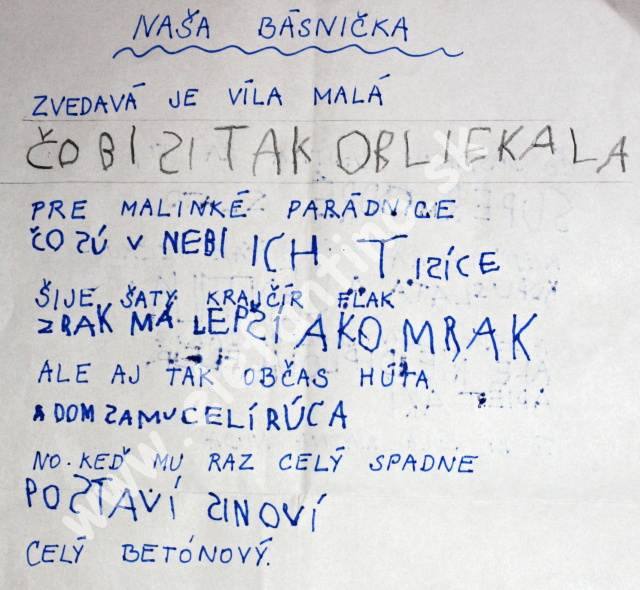 NAŠA BÁSNIČKA
ZVEDAVÁ JE VÍLA MALÁ
ČO BI SI TAK OBLIEKALA
PRE MALINKÉ PARÁDNICE
ČO SÚ V NEBI ICH TISÍCE
ŠIJE ŠATY KRAJČÍR FĽAK
ZRAK MÁ LEPŠÍ AKO MRAK
ALE AJ TAK OBČAS HÚTA
A DOM SAMU CELÍ RÚCA
NO. KEĎ MU RAZ CELÝ SPADNE
POSTAVÍ SI NOVÍ
CELÝ BETÓNOVÝ.